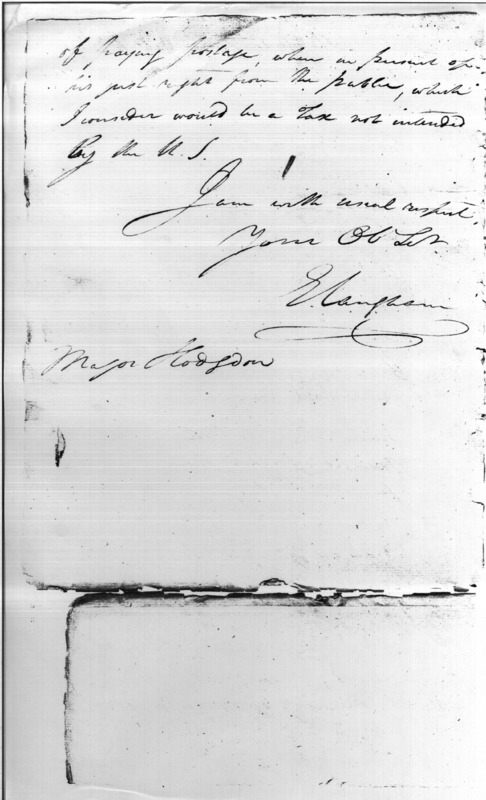 of paying postage, when in persuit of
his just right from the public, which
I consider would be a Tax not intended
By the U. S.
I am with usual respect,
Your Ob Svt.
E. Langham
Major Hodgdon